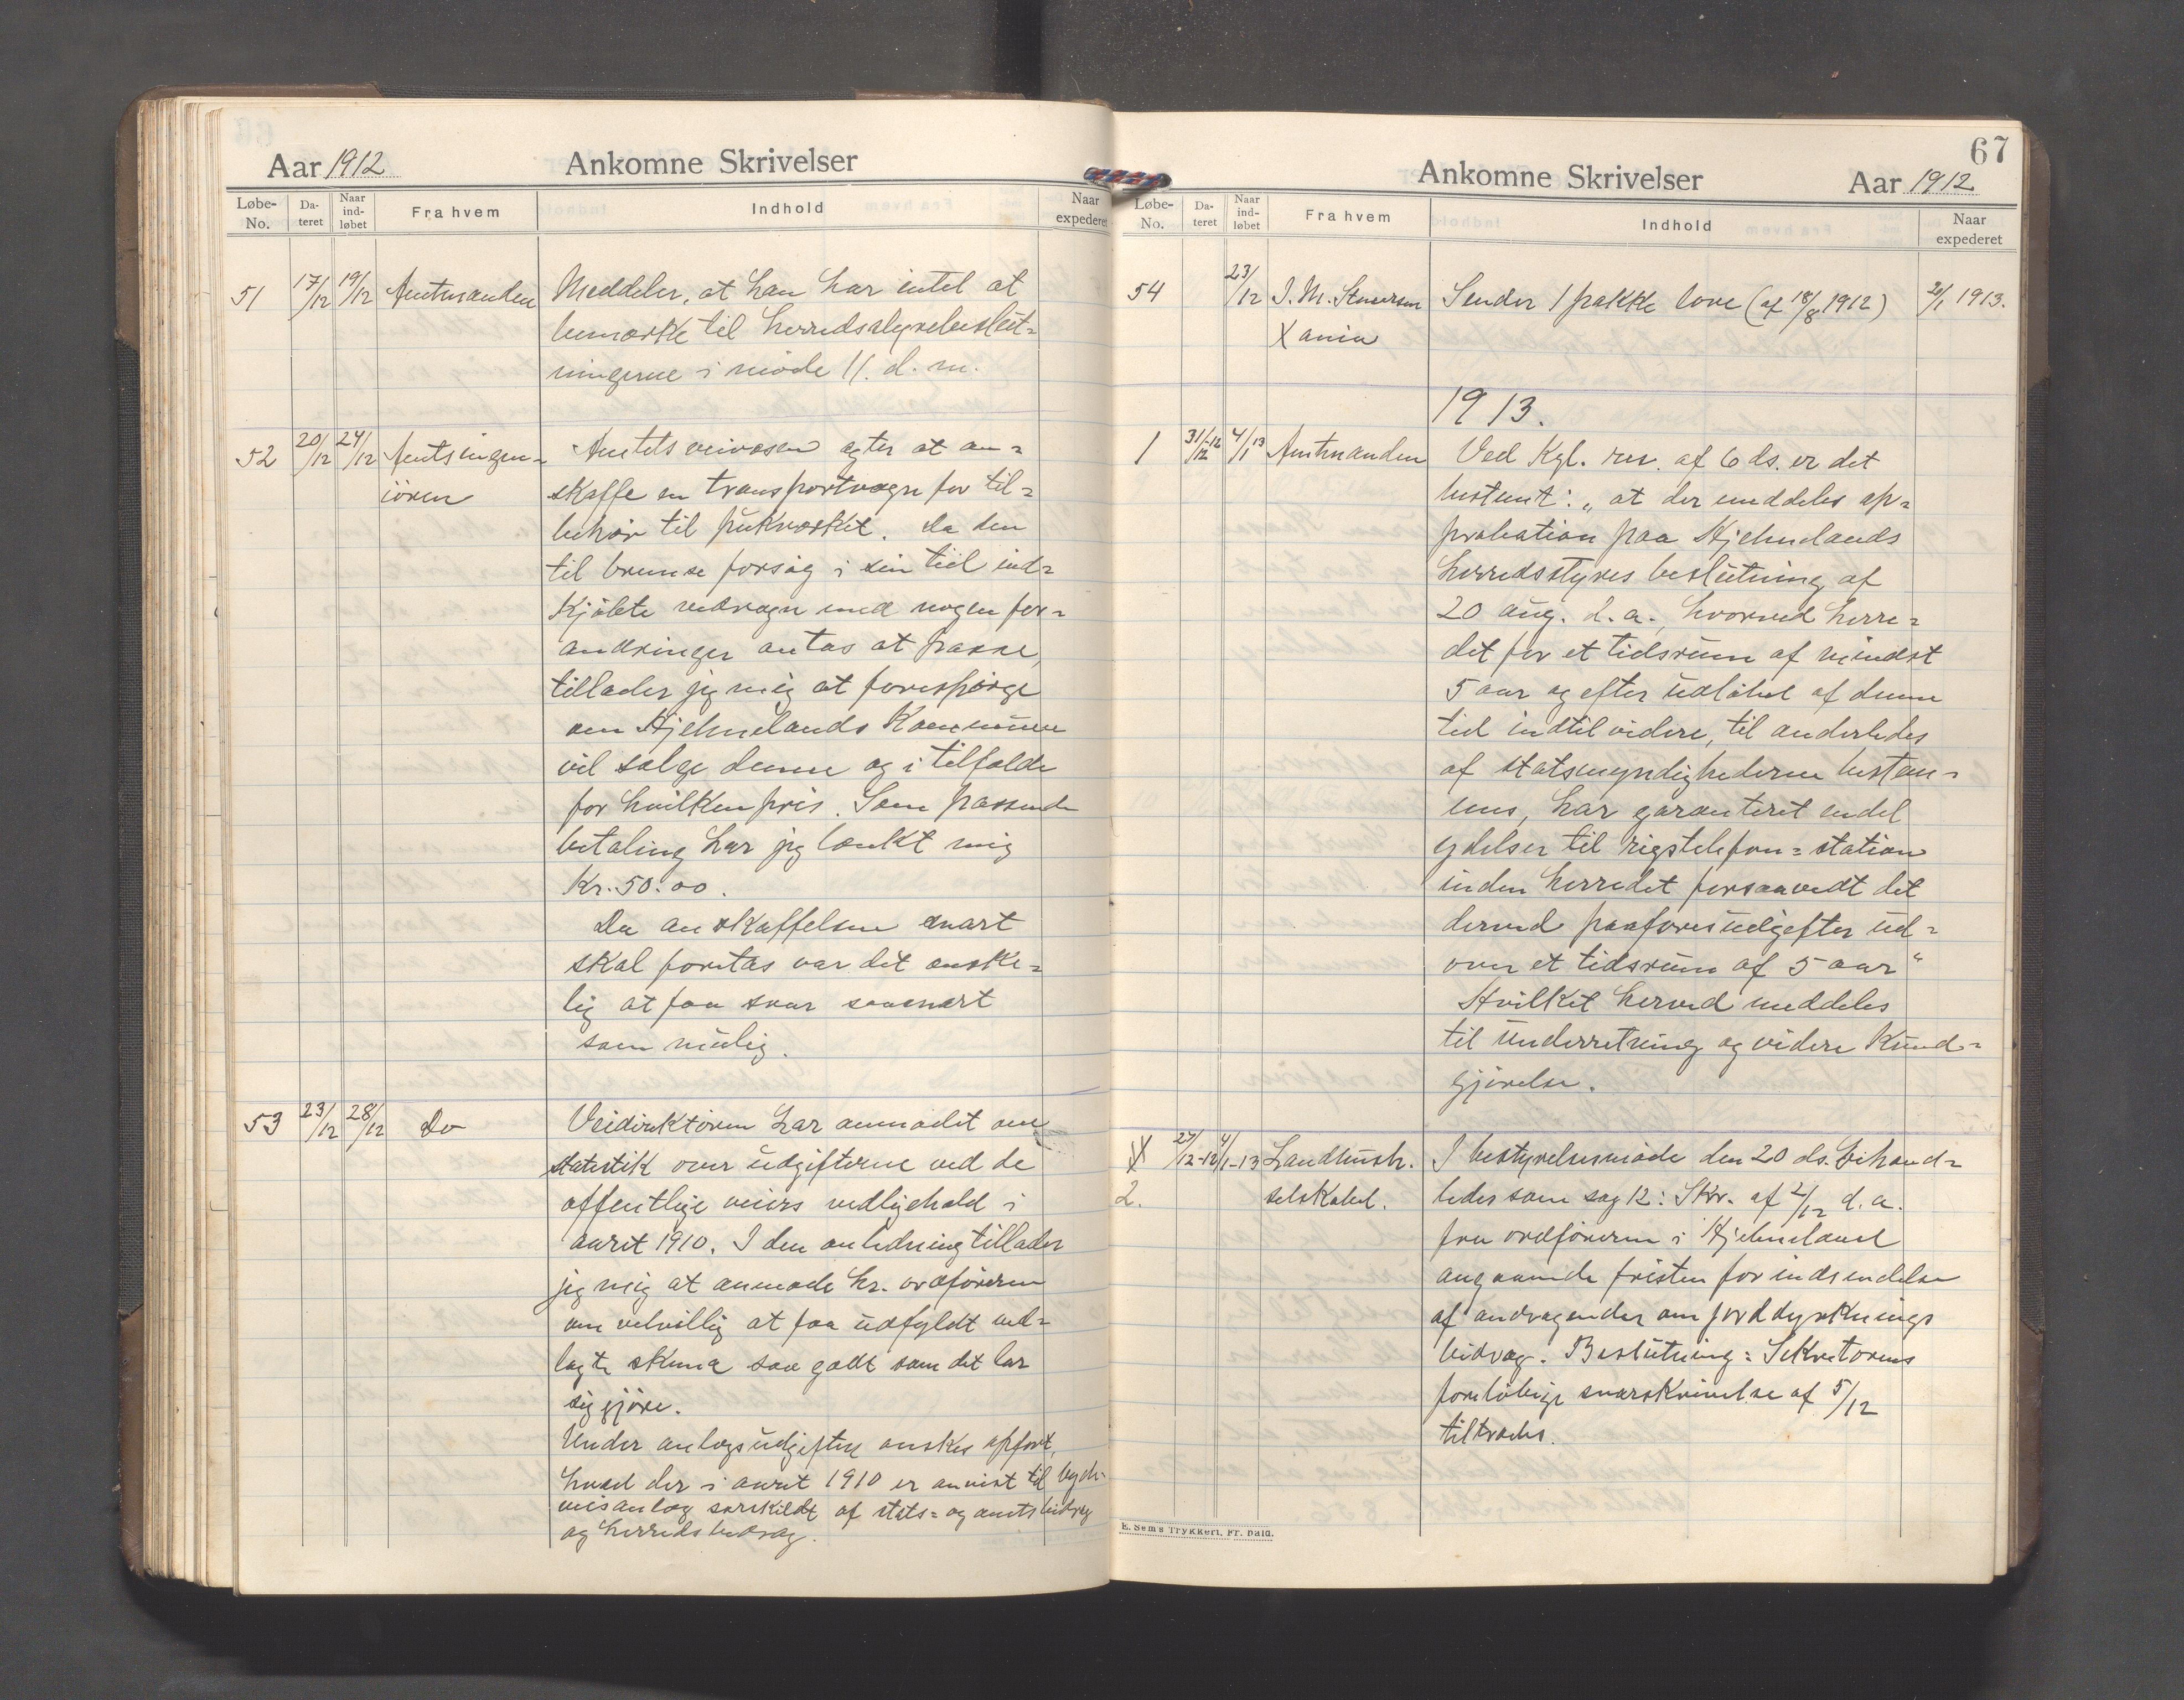 Aar 1912 Ankomne Skrivelser
Løbe-No. Da-teret Naar ind-løbet Fra hvem Indhold Naar expederet
51 17/12 19/12 Amtmanden Meddeler, at han har intet at
bemærke til herredsstyrebeslut=
ningerne i møde 11. d. m.
52 20/12 24/12 Amtsingen= Amtets veivæsen agter at an=
iøren skaffe en transportvogn for til=
behør til pukværket. Da den
til bremse forsøg i sin tid ind=
kjøbte vedvogn med nogen for=
andringer antas at passe,
tillader jeg mig at forespørge
om Hjelmelands Kommune
vil sælge denne og i tilfælde
for hvilken pris. Som passende
betaling har jeg tænkt mig
Kr. 50.00.
Da anskaffelsen snart
skal foretas var det ønske=
lig at faa svar saasnart
som mulig.
53 23/12 28/12 Do Veidirektøren har anmodet om
statistik over udgifterne ved de
offentlige veiers vedligehold i
aaret 1910. I den anledning tillader
jeg mig at anmode hr. ordføreren
om velvillig at faa udfyldt ved=
lagte skema saa godt som det lar
sig gjøre.
Under anlægsudgifter ønskes opført,
hvad der i aaret 1910 er anvist til bygde-
veisanlæg særskildt af stats= og amtsbidrag
og herredsbidrag.
67
Ankomne Skrivelser Aar 1912
Løbe-No. Da-teret Naar ind-løbet Fra hvem Indhold Naar expederet
54 23/12 J. M. Stenersen Sender 1 pakke love (af 18/8 1912) 1913.
Xania
1913.
1 31/12-12 4/1 13 Amtmanden Ved Kgl. res. af 6 ds. er det
bestemt: „at der meddeles ap=
probation paa Hjelmelands
herredsstyres beslutning af
20 aug. d. a., hvorved herre=
det for et tidsrum af mindst
5 aar og efter udløbet af denne
tid indtil videre, til anderledes
af statsmyndighederne bestem=
mes, har garanteret endel
ydelser til rigstelefon=station
inden herredet forsaavidt det
derved paaføres udgifter ud=
over et tidsrum af 5 aar“
Hvilket herved meddeles
til underretning og videre Kund=
gjørelse.
X 27/12-12 4/1-13 Landhush. I bestyrelsesmøde den 20 ds. behand=
2. selskabet. ledes som sag 12: Skr. af 2/12 d. a.
fra ordføreren i Hjelmeland
angaaende fristen for indsendelse
af andragender om jorddyrknings
bidrag. Beslutning: Sekretærens
foreløbige svarskrivelse af 5/12
tiltrædes.
E. Sem's Trykkeri, Fr. hald.